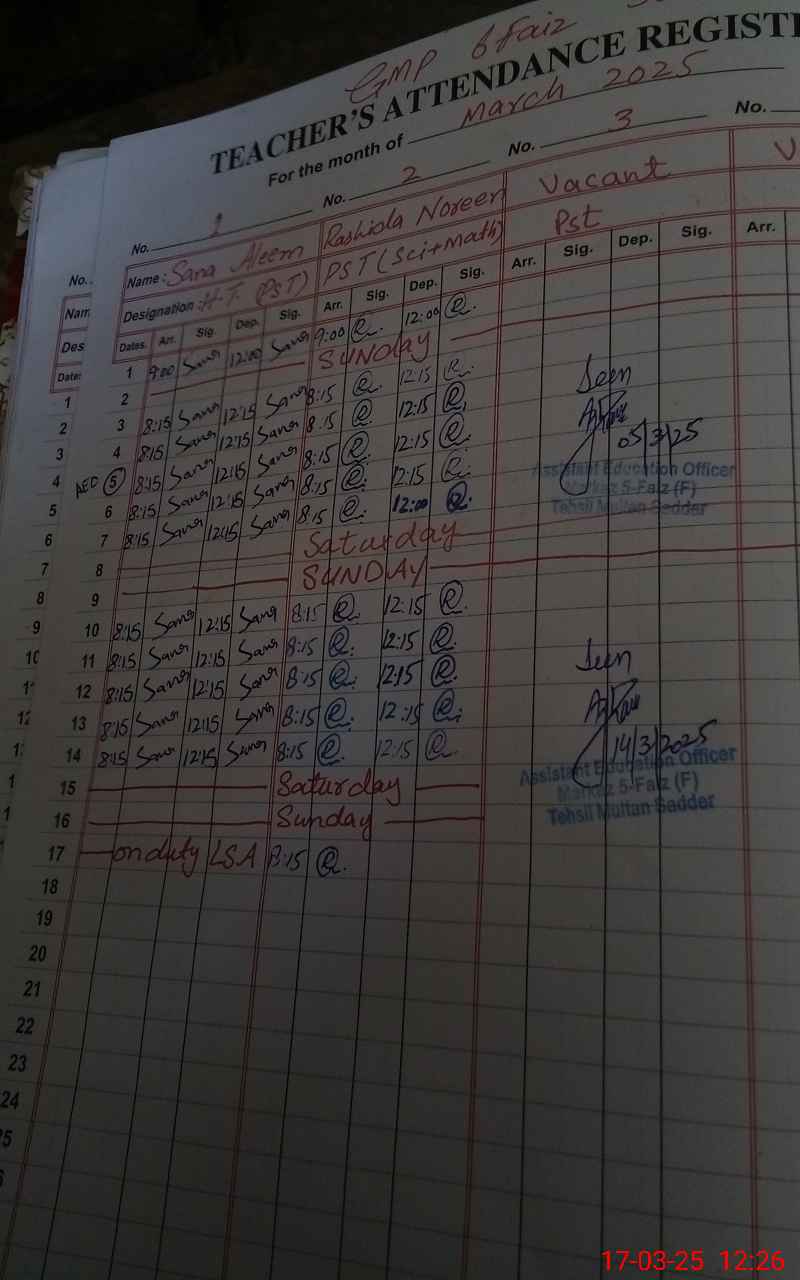 GMP 6 Faiz
TEACHER'S ATTENDANCE REGIST
For the month of March 2025
No. 1 No. 2 No. 3 No.
Name: Sana Aleem Rashida Noreen Vacant V
Designation: H.T. (PST) PST (Sci+Math) Pst
Dates. Arr. Sig. Dep. Sig. Arr. Sig. Dep. Sig. Arr. Sig. Dep. Sig. Arr.
1 9:00 Sana 12:00 Sana 9:00 R. 12:00 R.
2 SUNday
3 8:15 Sana 12:15 Sana 8:15 R. 12:15 R.
4 8:15 Sana 12:15 Sana 8:15 R. 12:15 R.
AEO 5 8:15 Sana 12:15 Sana 8:15 R. 12:15 R.
6 8:15 Sana 12:15 Sana 8:15 R. 12:15 R.
7 8:15 Sana 12:15 Sana 8:15 R. 12:00 R.
Seen
05/3/25
Assistant Education Officer
Markaz 5-Faiz (F)
Tehsil Multan Sadder
8 Saturday
9 SUNDAY
10 8:15 Sana 12:15 Sana 8:15 R. 12:15 R.
11 8:15 Sana 12:15 Sana 8:15 R. 12:15 R.
12 8:15 Sana 12:15 Sana 8:15 R. 12:15 R.
13 8:15 Sana 12:15 Sana 8:15 R. 12:15 R.
14 8:15 Sana 12:15 Sana 8:15 R. 12:15 R.
Seen
14/3/2025
Assistant Education Officer
Markaz 5-Faiz (F)
Tehsil Multan Sadder
15 Saturday
16 Sunday
17 on duty LSA 8:15 R.
18
19
20
21
22
23
24
25
26
27
28
29
30
31
No.
Nam
Des
Date
1
2
3
4
5
6
7
8
9
10
17-03-25 12:26